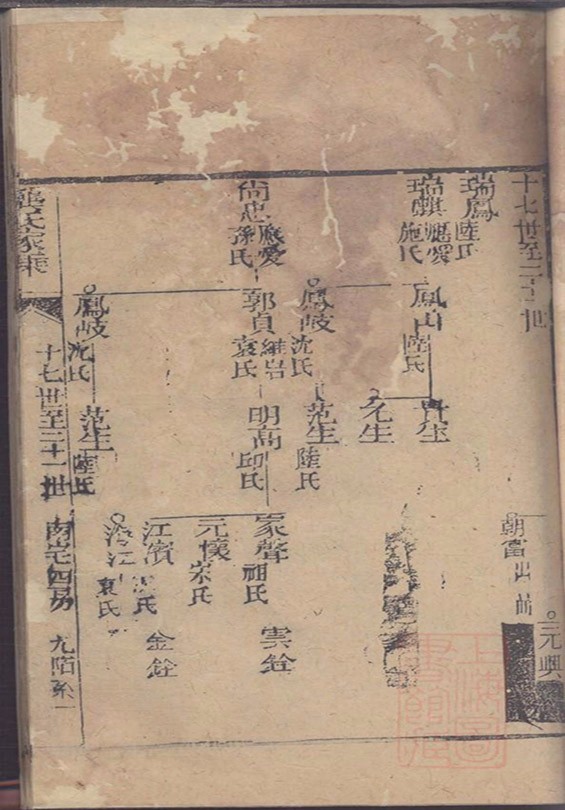 十七世至二十一世
瑞鳳
陸氏
瑞麒
應愛
施氏
鳳山
陸氏
貴生
元生
鳳岐
沈氏
范生
陸氏
尚忠
應愛
孫氏
郭貞
維岩
袁氏
明高
邱氏
家聲
祖氏
雲銓
元懷
宋氏
江濱
氏
金銓
江
袁氏
鳳岐
沈氏
范生
陸氏
朝富
出
元興
氏家乘
十七世至二十一世
四房
九陌